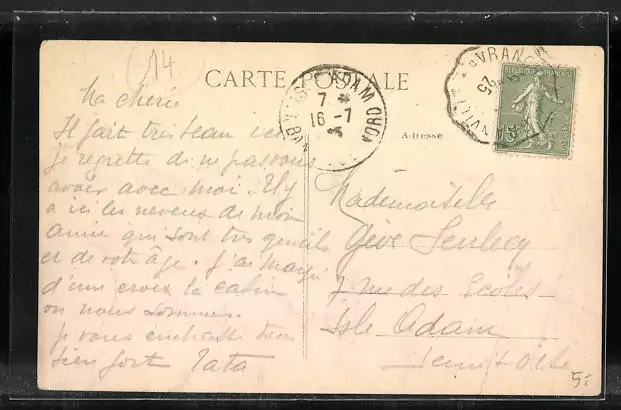 (14
CARTE POSTALE
Ma chérie
Il fait très beau ici
je regrette de ne pas vous
avoir avec moi. Il y
a ici les neveux de mon
amie qui sont très gentils
et de votre âge. J'ai marqué
d'une croix la cabine
où nous sommes.
je vous embrasse bien
bien fort Tata
ISLE-ADAM
7
16 -7
Adresse
AVRANC
25
RÉPUBLIQUE FRANÇAISE
15
POSTES
Mademoiselle
7 rue des Ecoles
Isle Adam
Seine et Oise
5